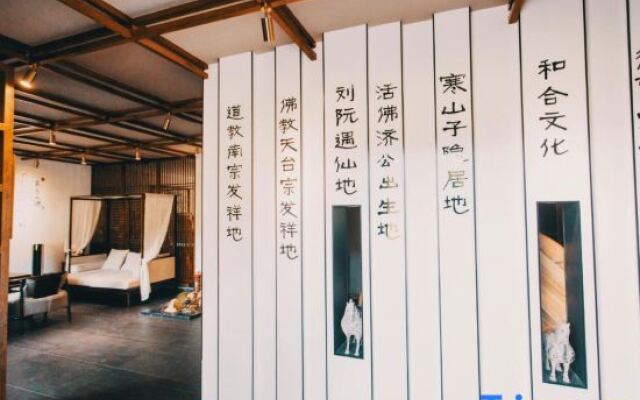 道教南宗发祥地
佛教天台宗发祥地
刘阮遇仙地
活佛济公出生地
寒山子隐居地
和合文化